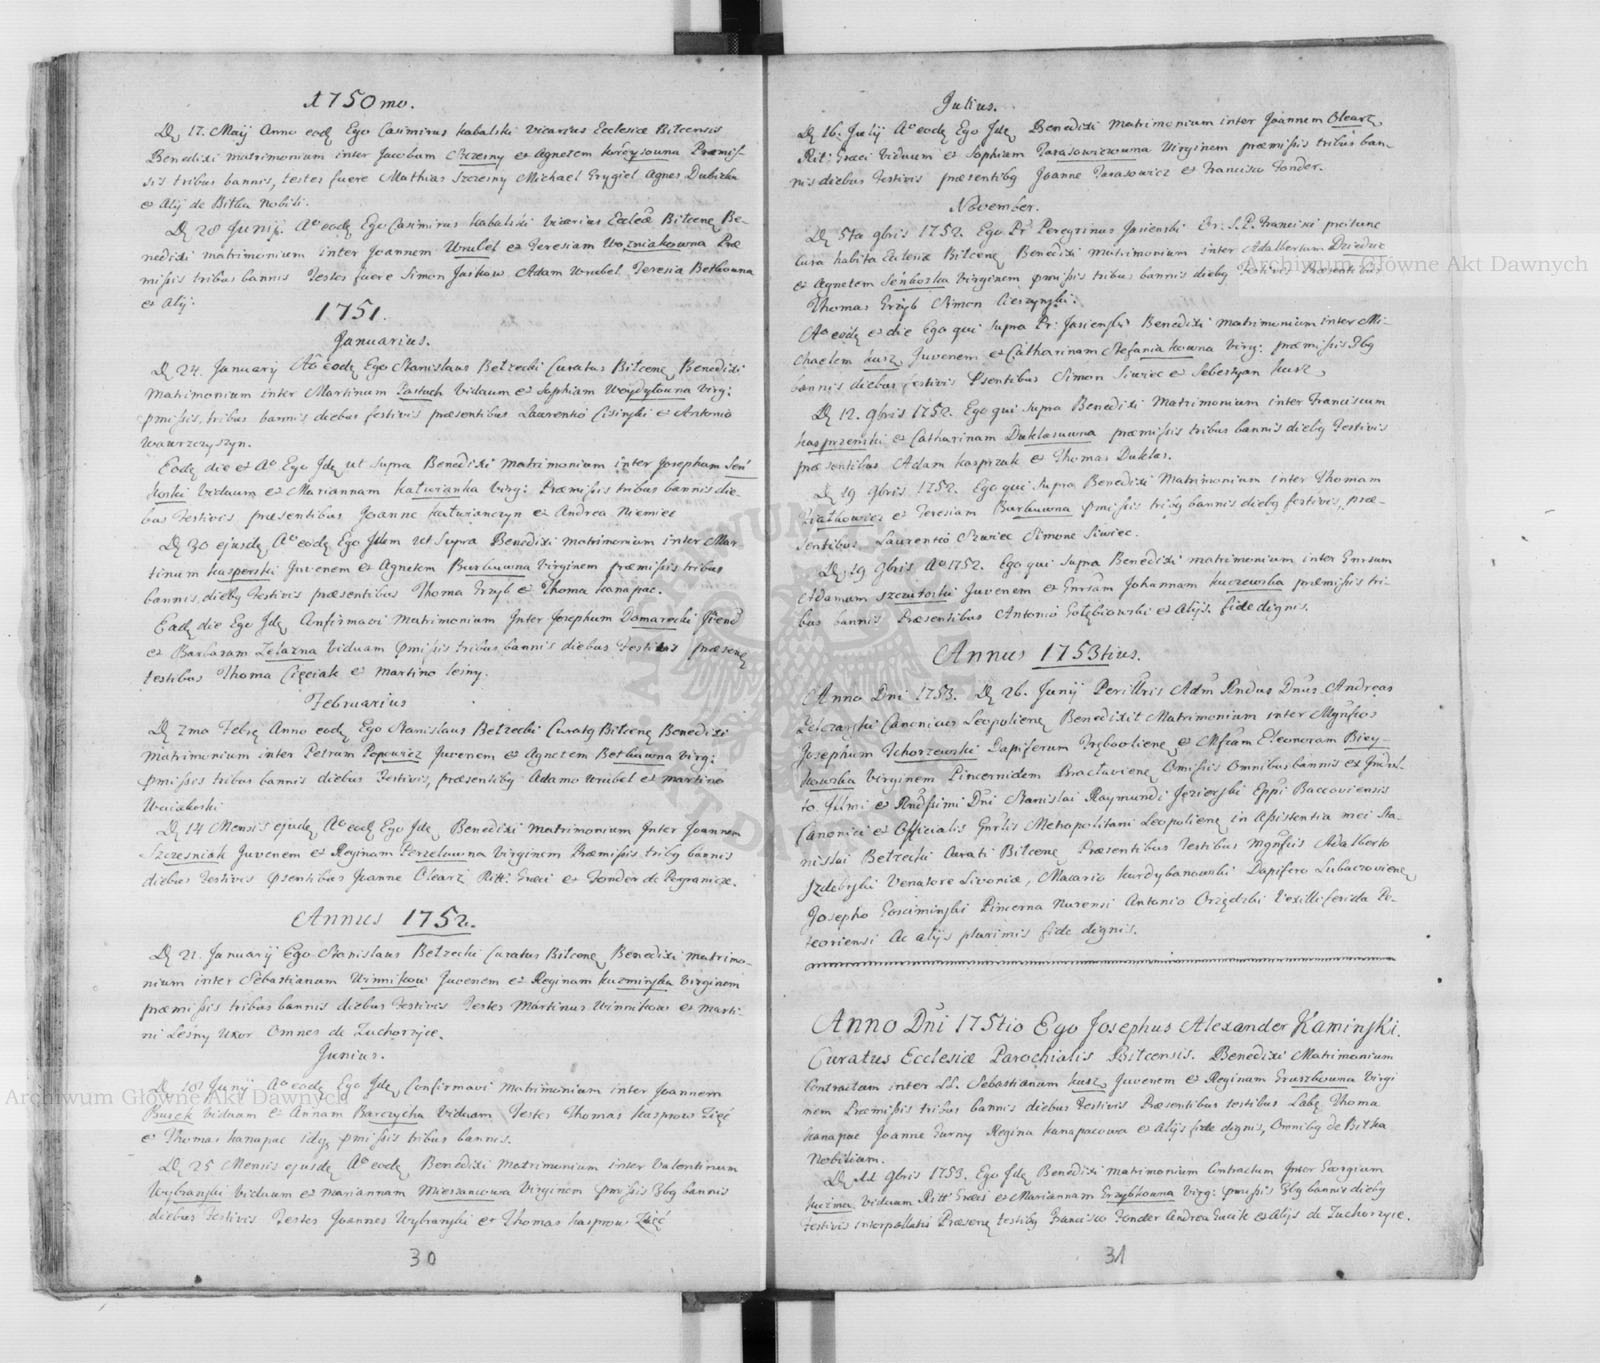 1750mo.
Dę 17. Maij Anno eodę Ego Casimirus Kabalski Vicarius Ecclesiæ Bitcensis
Benedixi matrimonium inter Jacobum Szczesny et Agnetem Præmis-
sis tribus bannis, testes fuere Mathias Szczesny Michael Grygiel Agnes Dubicka
et Alij de Bitka Nobili.
Dę 28 Junij. Aº eodę Ego Casimirus Kabalski Vicarius Eccleæ Bitcenę Be-
nedixi matrimonium inter Joannem Wrubel et Teresiam Wozniakowna Præ
missis tribus bannis Testes fuere Simon Jaskow Adam Wrubel Teresia Betkowna
et Alij.
1751.
Januarius.
Dę 24. Januarij Aº eodę Ego Stanislaus Betzecki Curatus Bitcenę Benedixi
matrimonium inter Martinum Viduum et Sophiam Woydylowna Virg:
pmissis tribus bannis diebus festivis præsentibus Laurentio et Antonio
Wawrzczyszyn.
Eodę die et Aº Ego Jdę ut supra Benedixi matrimonium inter Josephum Sen
koski Viduum et Mariannam Katwianka Virg: Præmissis tribus bannis die-
bus Festivis præsentibus Joanne Katwianczyn et Andrea Niemiec
Dę 30 ejusdę Aº eodę Ego Jdem ut Supra Benedixi matrimonium inter Mar
tinum Kasperski Juvenem et Agnetem Burkuwna Virginem præmissis tribus
bannis dieby Festivis præsentibus Thoma Grzyb et Thoma Kanapac.
Eadę die Ego Jdę Confirmavi matrimonium Inter Josephum Domarecki
et Barbaram Zelazna Viduam pmissis tribus bannis diebus Festivis præsenę
testibus Thoma Cięciak et Martino Lesny.
Februarius
Dę 7ma Febrę Anno eodę Ego Stanislaus Betzecki Curatę Bitcenę Benedixi
matrimonium inter Petrum Popowicz Juvenem et Agnetem Betkuwna Virg:
pmissis tribus bannis diebus Festivis, præsentiby Adamo Wrubel et Martino
Woiakoski
Dę 14 Mensis ejusdę Aº eodę Ego Jdę Benedixi matrimonium Inter Joannem
Szczesniak Juvenem et Reginam Perzeluwna Virginem Præmissis triby bannis
diebus Festivis psentibus Joanne Olearz Ritt. Græci et Fonder de Pogranicze.
Annus 1752.
Dę 21. Januarij Ego Stanislaus Betzecki Curatus Bitcenę Benedixi matrimo-
nium inter Sebastianum Winnikow Juvenem et Reginam Kuzminska Virginem
præmissis tribus bannis diebus Festivis Testes Martinus Winnikow et Marti-
ni Leśny Uxor Omnes de Zuchorzyce.
Junius.
Dę Junij Aº eodę Ego Jdę Confirmavi matrimonium inter Joannem
Burek Viduum et Annam Barczycha Viduam Testes Thomas Kasprow Zięć
et Thomas Kanapac pmissis tribus bannis.
Dę 25 Mensis ejusdę Aº eodę Benedixi matrimonium inter Valentinum
Wybranski Viduum et Mariannam Mieszancowa Virginem pmissis 3by bannis
diebus Festivis Testes Joannes Wybranski et Thomas Kasprow Zięć
30
Julius.
Dę 16. Julij Aº eodę Ego Jdę Benedixi matrimonium inter Joannem Olearz
Rit: Græci Viduum et Sophiam Tarasowiczowna Virginem præmissis tribus ban-
nis diebus Festivis præsentiby Joanne Tarasowicz et Francisco Fonder.
November.
Dę 5ta 9bris 1752. Ego Pr Peregrinus Jasienski Or: S.P. Francisci
cura habita Eclesiæ Bitcenę Benedixi matrimonium inter Adalbertum Dziaduc
et Agnetem Senkoska Virginem pmissis tribus bannis dieby Festivis Præsentibus
Thomas Grzyb Simon Cieszynski.
Aº eodę et die Ego qui supra Pr: Jasienski Benedixi matrimonium inter Mi-
chaelem Kusz Juvenem et Catharinam Stefaniakowna Virg: præmissis 3by
bannis diebus festivis Psentibus Simon Siwiec et Sebeszyan Kusz.
Dę 12. 9bris 1752. Ego qui supra Benedixi Matrimonium inter Franciscum
Kasprzenski et Catharinam Duklasuwna præmissis tribus bannis dieby Festivis
præsentibus Adam Kasprzak et Thomas Duklas.
Dę 19 9bris 1752. Ego qui supra Benedixi Matrimonium inter Thomam
Piatkowicz et Teresiam Burkuwna pmissis triby bannis dieby festivis, præ-
sentibus Laurentio Siwiec Simone Siwiec.
Dę 19 9bris Aº 1752. Ego qui supra Benedixi matrimonium inter Gnrsum
Adamum Szczutoski Juvenem et Gnrsam Johannam Kuczewska præmissis tri-
bus bannis Præsentibus Antonio Gołębiowski et Alijs. fide dignis.
Annus 1753tius.
Anno Dni 1753. Dę 26. Junij Perillris Adm Rndus Dnus Andreas
Canonicus Leopolienę Benedixit Matrimonium inter Mgnficos
Josephum Tchorzewski Dapiferum Trębovlienę et Mficam Eleonoram Biey-
kowska Virginem Pincernidem Bractaviene Omissis Omnibus bannis ex Indul-
to Illmi et Rndssimi Dni Stanislai Raymundi Jezierski Eppi Baccoviensis
Canonici et Officialis Gnrlis Metropolitani Leopolienę in Assistentia mei Sta-
nislai Betzecki Curati Bitcenę Præsentibus Testibus Mgnficis Adalberto
Izdebski Venatore Livoniæ, Macario Kurdybanowski Dapifero Lubaczoviene
Josepho Gosciminski Pincerna Nurensi Antonio Orzędzki Vexilliferida Po-
Ac alijs plurimis fide dignis.
Anno Dñi 1754tio Ego Josephus Alexander Kaminski.
Curatus Ecclesiæ Parochialis Bitcensis. Benedixi Matrimonium
Contractum inter LL. Sebastianum Kusz Juvenem et Reginam Gruszkowna Virgi
nem Præmissis tribus bannis diebus Festivis Præsentibus testibus Labę Thoma
Kanapac Joanne Gurny Regina Kanapacowa et Alijs fide dignis, Omniby de Bitka
Nobilium.
Dę 9bris 1753. Ego Jdę Benedixi matrimonium Contractum Inter Georgium
Kuzma Viduum Ritt Græci et Mariannam Grzybkowna Virg: pmissis 3by bannis dieby
Festivis interpollatis Præsenę testiby Francisco Fonder Andrea Gucik et Alijs de Zuchorzyce.
31
Archiwum Główne Akt Dawnych
Archiwum Główne Akt Dawnych